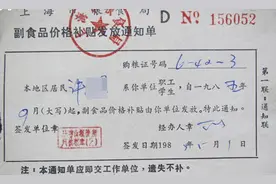 上海市粮食局
D No 156052
副食品价格补贴发放通知单
购粮证号码 6-42-3
本地区居民 许 系你单位 职工 学生 ,自一九八五年
9月(大写)起,副食品价格补贴由你单位发放,特此通知。
签发单位章 经办人章
签发日期198 年 月1日
注:本通知单应即交工作单位,遗失不补。
第一联:通知联